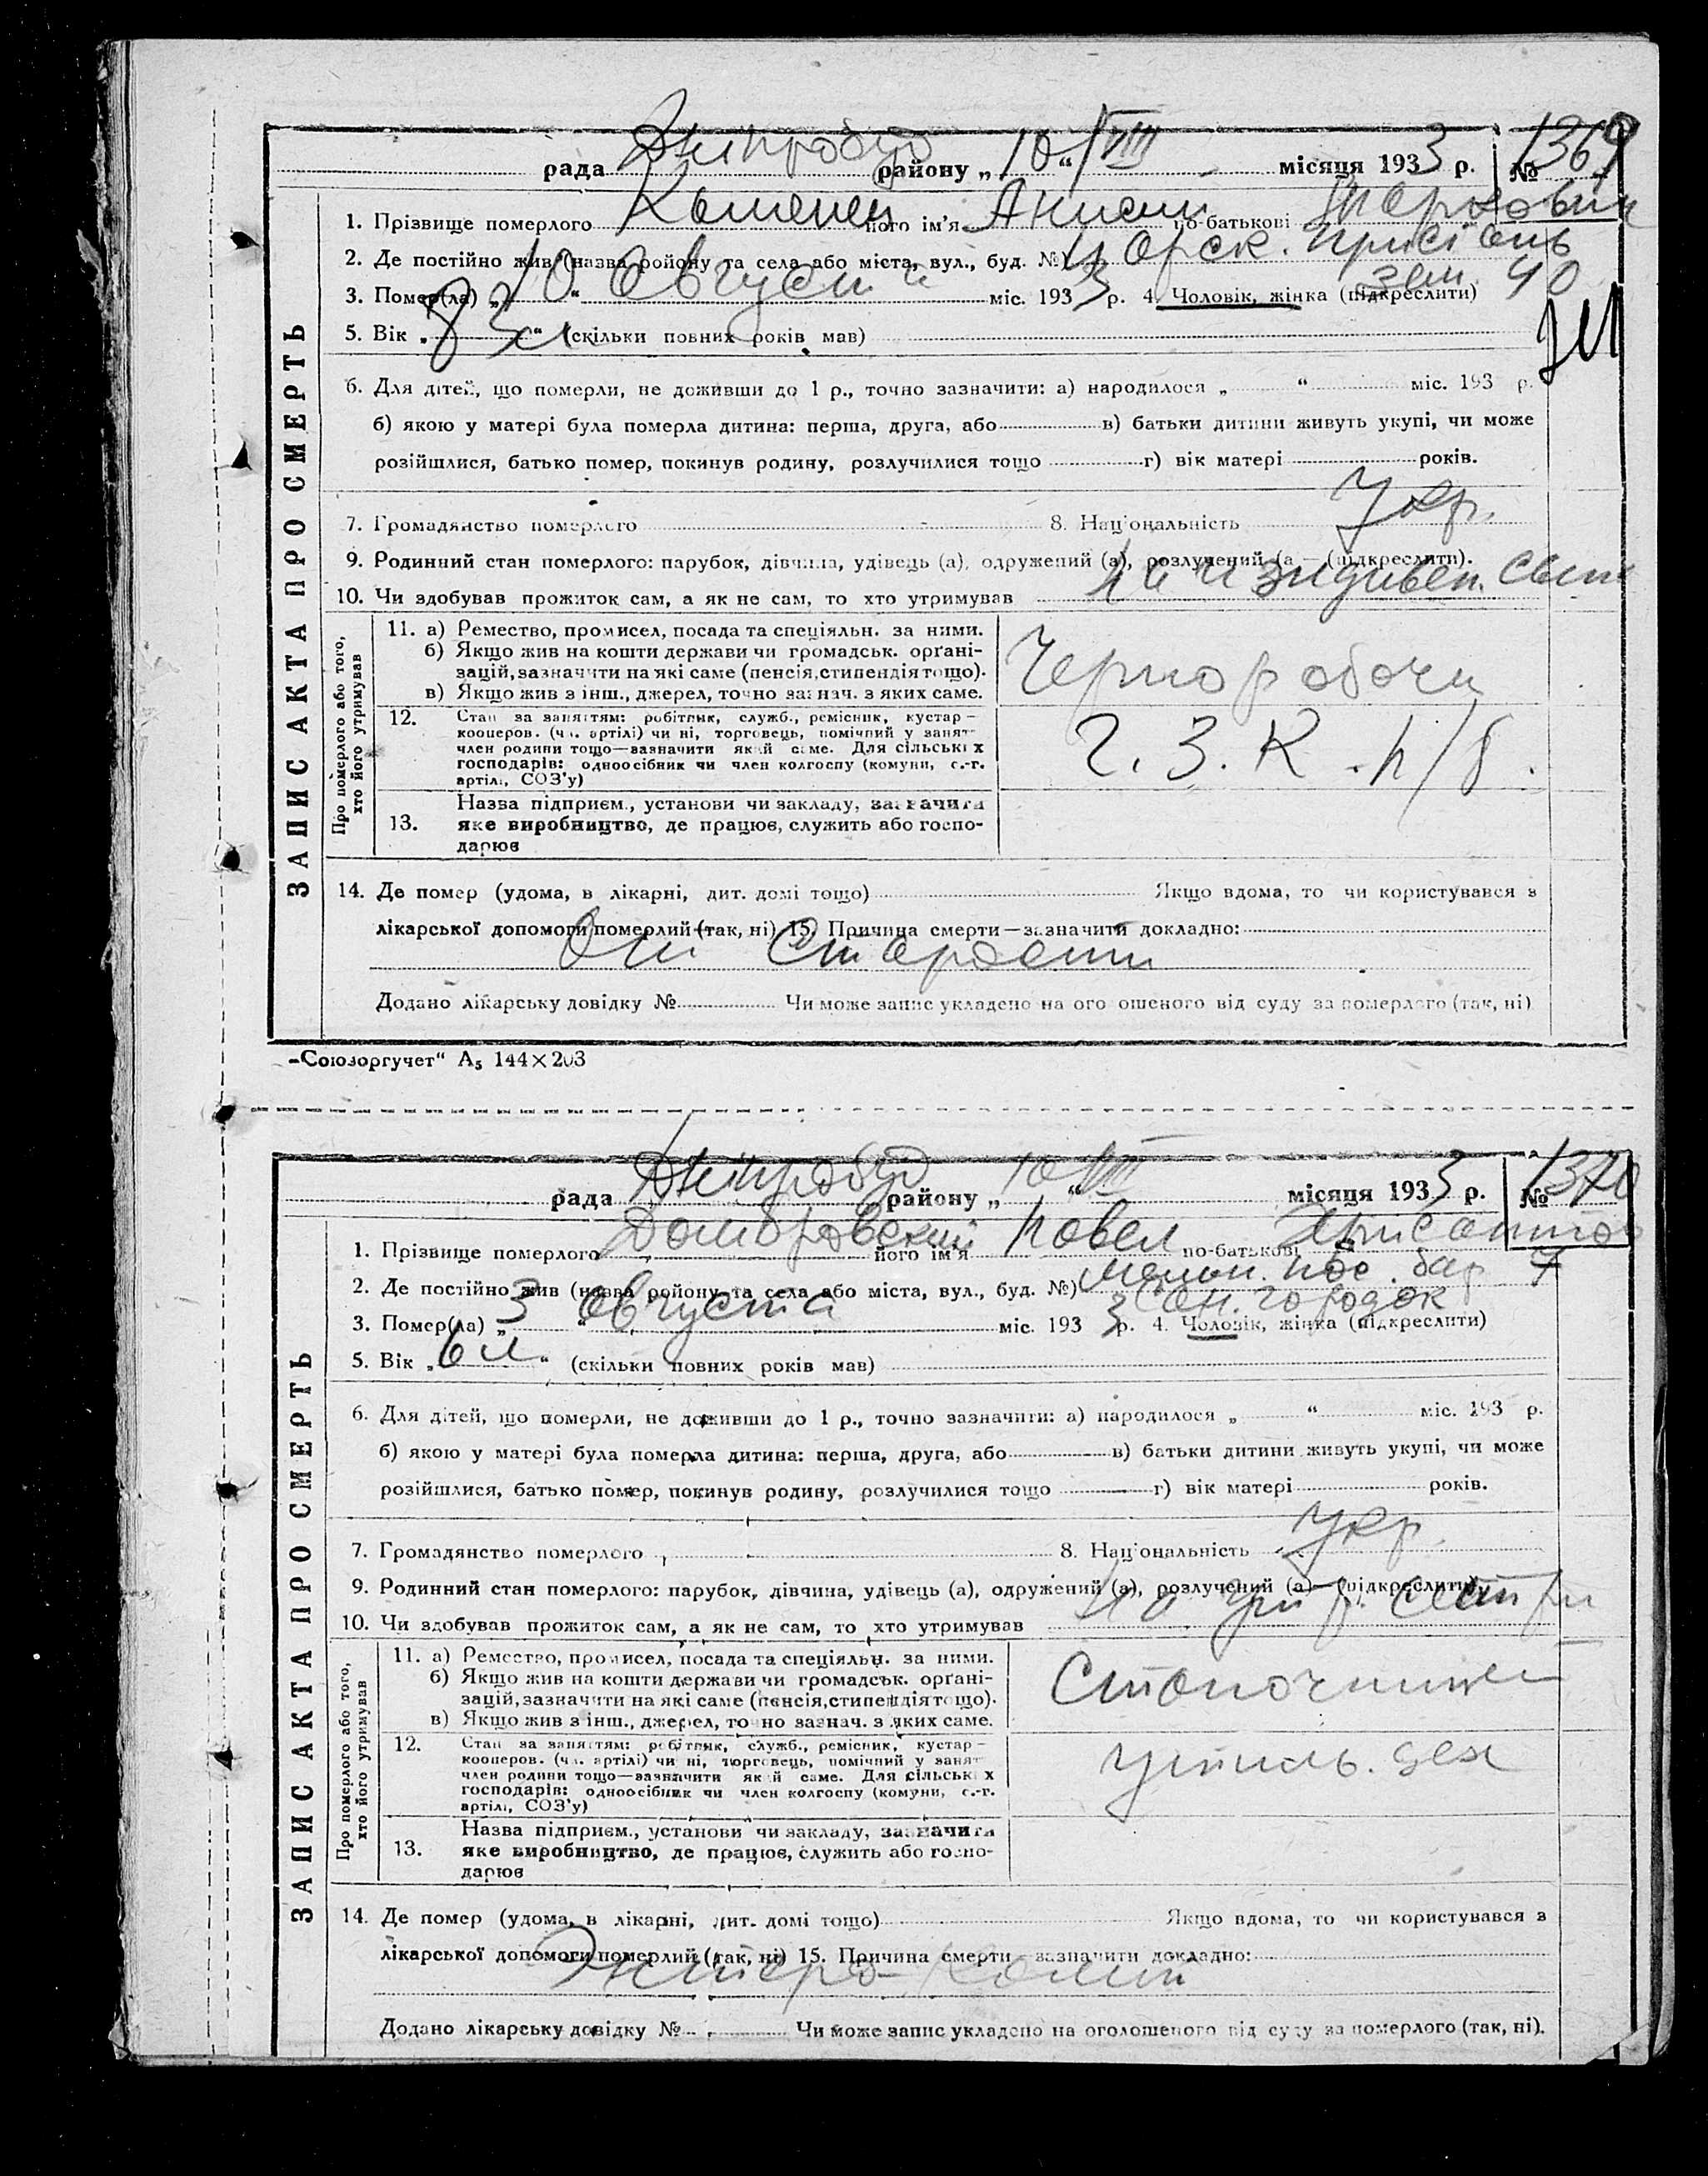 рада Дніпробуд району „10“ VIII місяця 1933 р. № 1369
1. Прізвище померлого його ім'я по-батькові
2. Де постійно жив (назва району та села або міста, вул., буд. №) присі
3. Помер(ла) „10“ Августа міс. 1933 р. 4. Чоловік, жінка (підкреслити) зем. 40
5. Вік „83 л“ (скільки повних років мав)
6. Для дітей, що померли, не доживши до 1 р., точно зазначити: а) народилося „ “ міс. 193 р.
б) якою у матері була померла дитина: перша, друга, або в) батьки дитини живуть укупі, чи може
розійшлися, батько помер, покинув родину, розлучилися тощо г) вік матері років.
7. Громадянство померлого 8. Національність Укр.
9. Родинний стан померлого: парубок, дівчина, удівець (а), одружений (а), розлучений (а — (підкреслити).
10. Чи здобував прожиток сам, а як не сам, то хто утримував на иждивен.
ЗАПИС АКТА ПРО СМЕРТЬ
Про померлого або того, хто його утримував
11. а) Ремество, промисел, посада та спеціяльн. за ними.
б) Якщо жив на кошти держави чи громадськ. орґані-
зацій, зазначити на які саме (пенсія, стипендія тощо).
в) Якщо жив з інш., джерел, точно зазнач. з яких саме.
Чернорабочи
12. Стан за заняттям: робітник, служб., ремісник, кустар –
кооперов. (чл. артілі) чи ні, торговець, помічний у занят-
член родини тощо—зазначити який саме. Для сільських
господарів: одноосібник чи член колгоспу (комуни, с.-г.
артілі, СОЗ'у)
13. Назва підприєм., установи чи закладу, зазначити
яке виробництво, де працює, служить або госпо-
дарює
14. Де помер (удома, в лікарні, дит. домі тощо) Якщо вдома, то чи користувався з
лікарської допомоги померлий (так, ні) 15. Причина смерти—зазначити докладно:
От старости
Додано лікарську довідку № Чи може запис укладено на оголошеного від суду за померлого (так, ні)
„Союзоргучет“ А₅ 144×203
рада Дніпробуд району „10“ VIII місяця 1933 р. № 1370
1. Прізвище померлого Домбровский його ім'я Павел по-батькові
2. Де постійно жив (назва району та села або міста, вул., буд. №) пос. бар 7
3. Помер(ла) „3“ Августа міс. 1933 р. 4. Чоловік, жінка (підкреслити) городок
5. Вік „6 л“ (скільки повних років мав)
6. Для дітей, що померли, не доживши до 1 р., точно зазначити: а) народилося „ “ міс. 193 р.
б) якою у матері була померла дитина: перша, друга, або в) батьки дитини живуть укупі, чи може
розійшлися, батько помер, покинув родину, розлучилися тощо г) вік матері років.
7. Громадянство померлого 8. Національність Укр.
9. Родинний стан померлого: парубок, дівчина, удівець (а), одружений (а), розлучений (а)— (підкреслити).
10. Чи здобував прожиток сам, а як не сам, то хто утримував На сестри
ЗАПИС АКТА ПРО СМЕРТЬ
Про померлого або того, хто його утримував
11. а) Ремество, промисел, посада та спеціяльн. за ними.
б) Якщо жив на кошти держави чи громадськ. орґані-
зацій, зазначити на які саме (пенсія, стипендія тощо).
в) Якщо жив з інш., джерел, точно зазнач. з яких саме.
12. Стан за заняттям: робітник, служб., ремісник, кустар –
кооперов. (чл. артілі) чи ні, торговець, помічний у занят-
член родини тощо—зазначити який саме. Для сільських
господарів: одноосібник чи член колгоспу (комуни, с.-г.
артілі, СОЗ'у)
утиль. цех
13. Назва підприєм., установи чи закладу, зазначити
яке виробництво, де працює, служить або госпо-
дарює
14. Де помер (удома, в лікарні, дит. домі тощо) Якщо вдома, то чи користувався з
лікарської допомоги померлий (так, ні) 15. Причина смерти—зазначити докладно:
Энтеро-колит
Додано лікарську довідку № Чи може запис укладено на оголошеного від суду за померлого (так, ні).